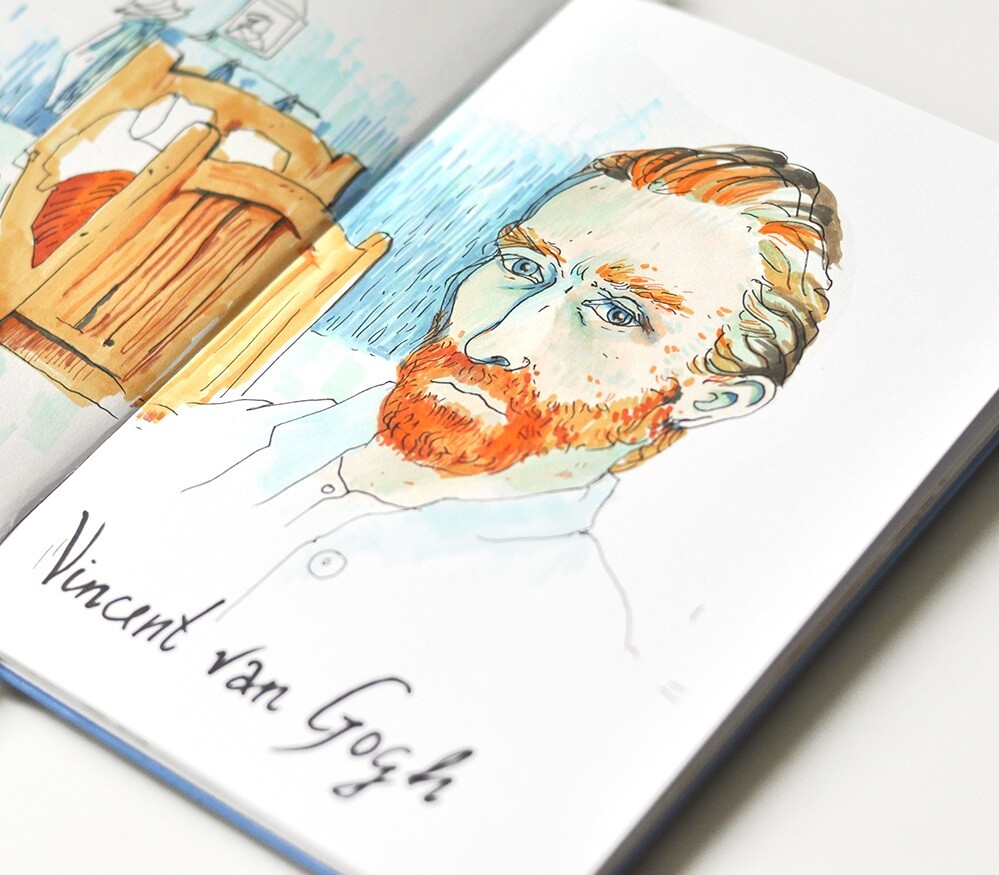 Vincent van Gogh